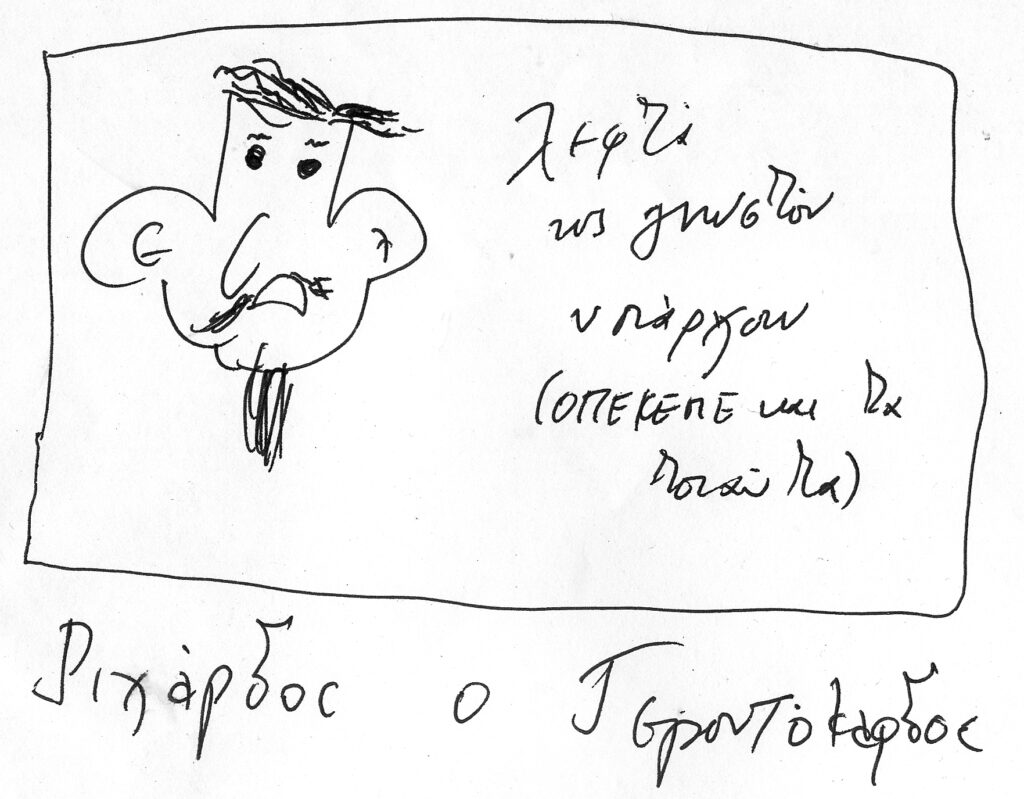 λεφτά
ως γνωστόν
υπάρχουν
(ΟΠΕΚΕΠΕ και τα
τοιαύτα)
Ριχάρδος ο Γεροντόκαρδος